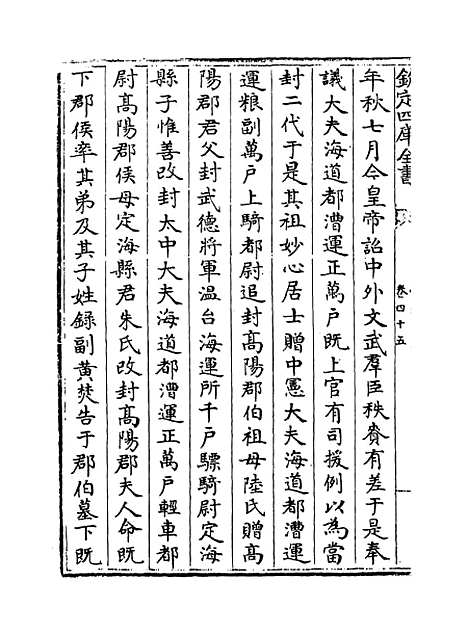 欽定四庫全書
卷四十五
年秋七月今皇帝詔中外文武羣臣秩賚有差于是奉
議大夫海道都漕運正萬戶既上官有司援例以為當
封二代于是其祖妙心居士贈中憲大夫海道都漕運
運粮副萬戶上騎都尉追封高陽郡伯祖母陸氏贈高
陽郡君父封武德將軍溫台海運所千戶驃騎尉定海
縣子惟善改封太中大夫海道都漕運正萬戶輕車都
尉高陽郡侯母定海縣君朱氏改封高陽郡夫人命既
下郡侯率其弟及其子姓錄副黃焚告于郡伯墓下既